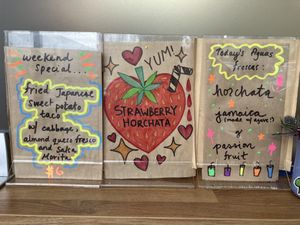 weekend
special...
fried Japanese
sweet potato
taco
w/ cabbage,
almond queso fresco
and Salsa
Morita
$6
YUM!
STRAWBERRY
HORCHATA
Today's Aguas
frescas:
horchata
jamaica
(made w/ agave!)
&
passion
fruit